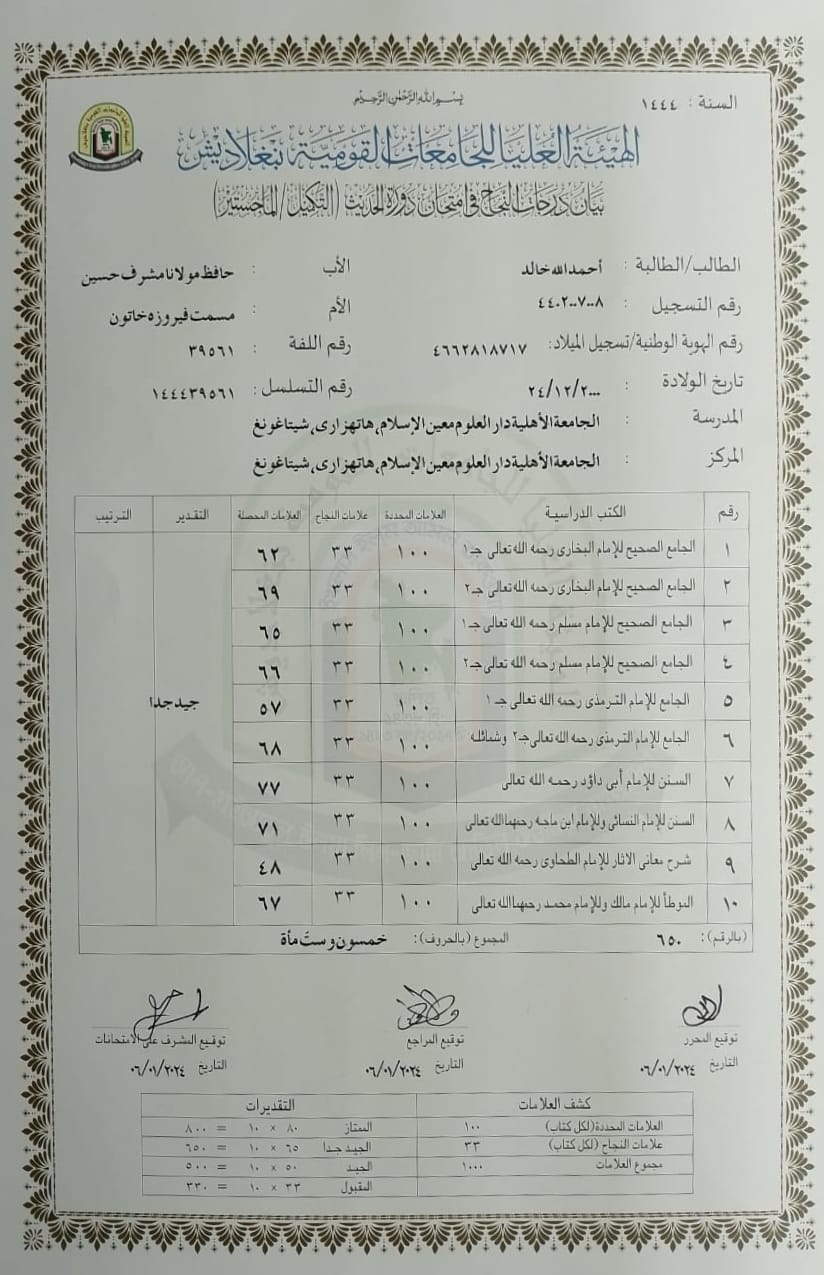 بسم الله الرحمن الرحيم
السنة : ١٤٤٤
الهيئة العليا للجامعات القومية بنغلاديش
بيان درجات النجاح في امتحان دورة الحديث (التكميل/الماجستير)
الطالب/الطالبة : أحمد الله خالد الأب : حافظ مولانا مشرف حسين
رقم التسجيل : ٤٤٠٢٠٠٧٠٠٨ الأم : مسمت فيروزه خاتون
رقم الهوية الوطنية/تسجيل الميلاد: ٤٦٦٢٨١٨٧١٧ رقم اللفة : ٣٩٥٦١
تاريخ الولادة : ٢٤/١٢/٢٠٠٠ رقم التسلسل : ١٤٤٤٣٩٥٦١
المدرسة : الجامعة الأهلية دار العلوم معين الإسلام، هاتهزاری، شيتاغونغ
المركز : الجامعة الأهلية دار العلوم معين الإسلام، هاتهزاری، شيتاغونغ
رقم الكتب الدراسية العلامات المحددة علامات النجاح العلامات المحصلة التقدير الترتيب
١ الجامع الصحيح للإمام البخاری رحمه الله تعالى جـ١ ١٠٠ ٣٣ ٦٢
٢ الجامع الصحيح للإمام البخاری رحمه الله تعالى جـ٢ ١٠٠ ٣٣ ٦٩
٣ الجامع الصحيح للإمام مسلم رحمه الله تعالى جـ١ ١٠٠ ٣٣ ٦٥
٤ الجامع الصحيح للإمام مسلم رحمه الله تعالى جـ٢ ١٠٠ ٣٣ ٦٦
٥ الجامع للإمام الترمذی رحمه الله تعالى جـ ١ ١٠٠ ٣٣ ٥٧ جيد جدا
٦ الجامع للإمام الترمذی رحمه الله تعالى جـ٢ وشمائله ١٠٠ ٣٣ ٦٨
٧ السنن للإمام أبی داؤد رحمه الله تعالى ١٠٠ ٣٣ ٧٧
٨ السنن للإمام النسائی وللإمام ابن ماجه رحمهما الله تعالى ١٠٠ ٣٣ ٧١
٩ شرح معانی الاثار للإمام الطحاوی رحمه الله تعالى ١٠٠ ٣٣ ٤٨
١٠ الموطأ للإمام مالك وللإمام محمد رحمهما الله تعالى ١٠٠ ٣٣ ٦٧
(بالرقم): ٦٥٠ المجموع (بالحروف): خمسون وست مأة
توقيع المحرر توقيع المراجع توقيع المشرف على الامتحانات
التاريخ ٠٦/٠١/٢٠٢٤ التاريخ ٠٦/٠١/٢٠٢٤ التاريخ ٠٦/٠١/٢٠٢٤
كشف العلامات التقديرات
العلامات المحددة(لكل كتاب) ١٠٠ الممتاز ٨٠ × ١٠ = ٨٠٠
علامات النجاح (لكل كتاب) ٣٣ الجيد جدا ٦٥ × ١٠ = ٦٥٠
مجموع العلامات ١٠٠٠ الجيد ٥٠ × ١٠ = ٥٠٠
المقبول ٣٣ × ١٠ = ٣٣٠